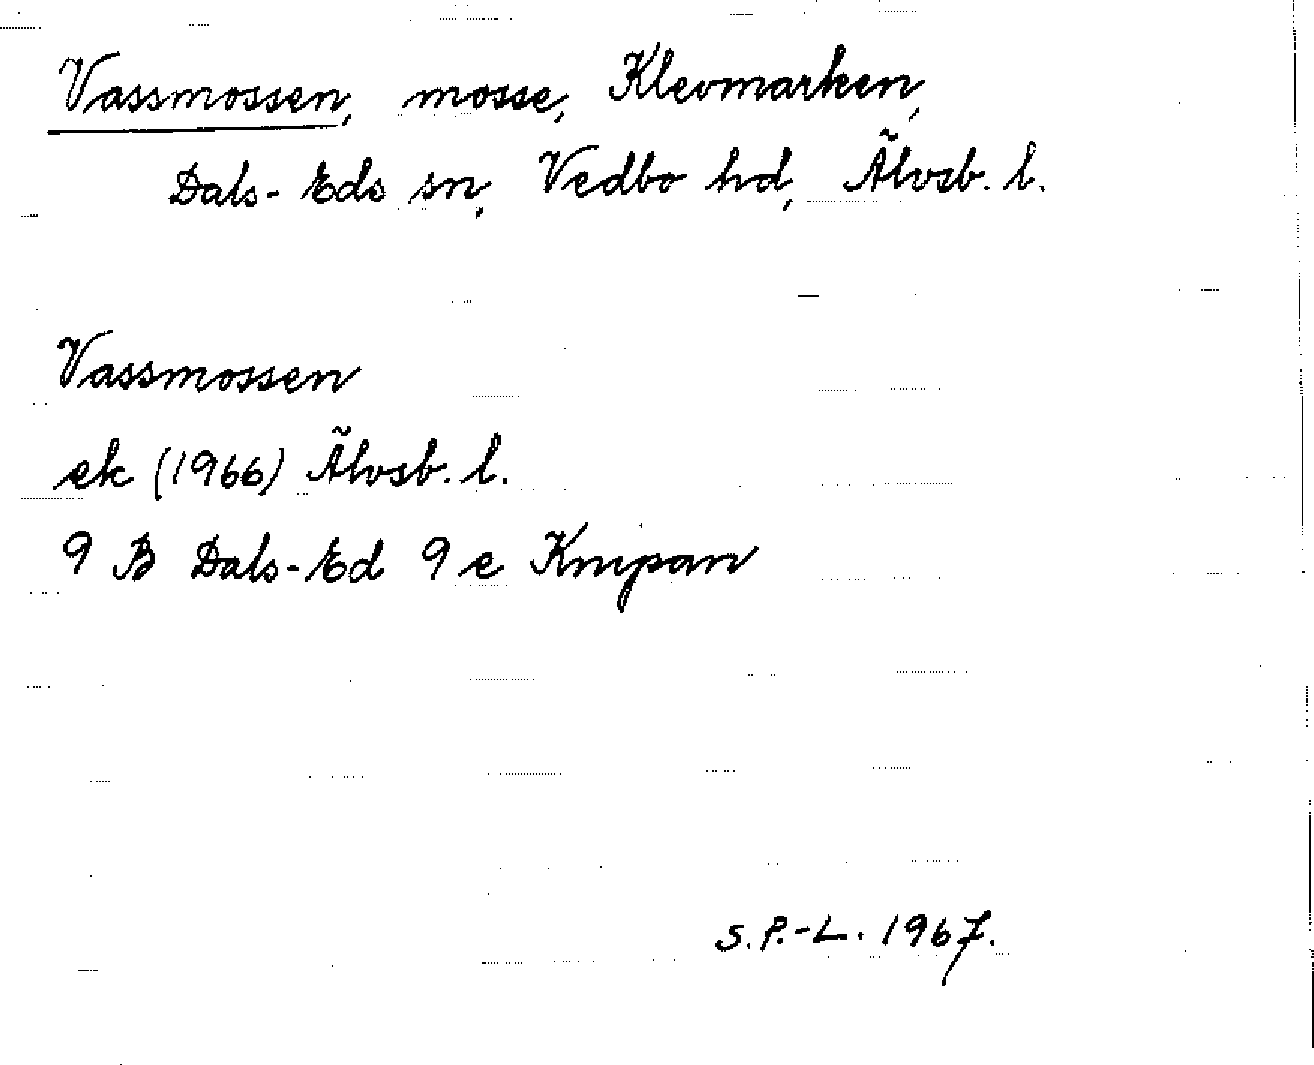 Vassmossen, mosse, Klevmarken,
Dals-Eds sn, Vedbo hd, Älvsb. l.
Vassmossen
ek (1966) Älvsb. l.
9 B Dals-Ed 9 e Knipan
S. P.-L. 1967.